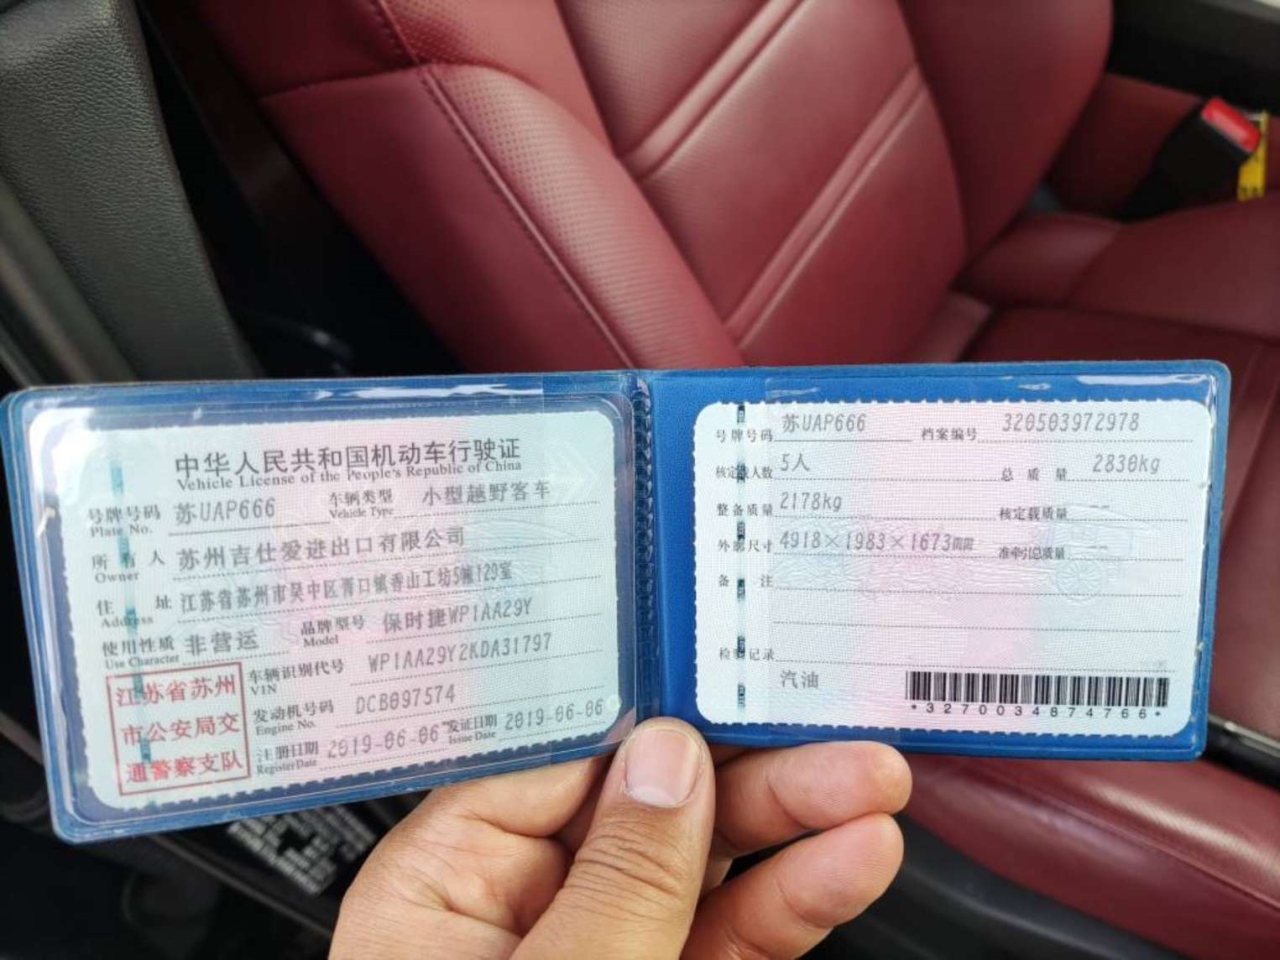 中华人民共和国机动车行驶证
Vehicle License of the People's Republic of China
号牌号码 苏UAP666 车辆类型 小型越野客车
Plate No. Vehicle Type
所有人 苏州吉仕爱进出口有限公司
Owner
住址 江苏省苏州市吴中区胥口镇香山工坊5幢129室
Address
使用性质 非营运 品牌型号 保时捷WP1AA29Y
Use Character Model
江苏省苏州
市公安局交
通警察支队
车辆识别代号 WP1AA29Y2KDA31797
VIN
发动机号码 DCB097574
Engine No.
注册日期 2019-06-06 发证日期 2019-06-06
Register Date Issue Date
号牌号码 苏UAP666 档案编号 320503972978
核定载人数 5人 总质量 2830kg
整备质量 2178kg 核定载质量 --
外廓尺寸 4918×1983×1673mm 准牵引总质量 --
备注
检验记录
汽油
*3270034874766*